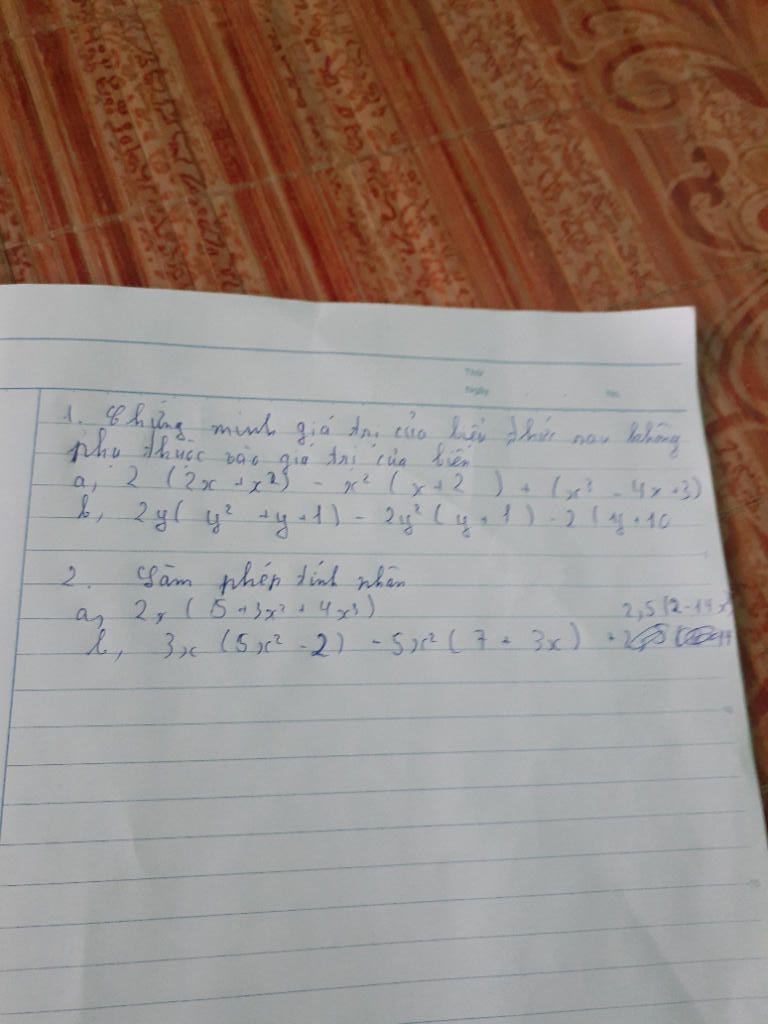 Thứ
Ngày No.
1. Chứng minh giá trị của biểu thức sau không
phụ thuộc vào giá trị của biến
a, 2 (2x + x²) - x² (x + 2) + (x³ - 4x + 3)
b, 2y( y² + y + 1) - 2y² ( y + 1) - 2 ( y + 10
2. Làm phép tính nhân
a, 2x ( 5 + 3x² + 4x³) 2,5 (2 - 14x
b, 3x (5x² - 2) - 5x² ( 7 + 3x) +